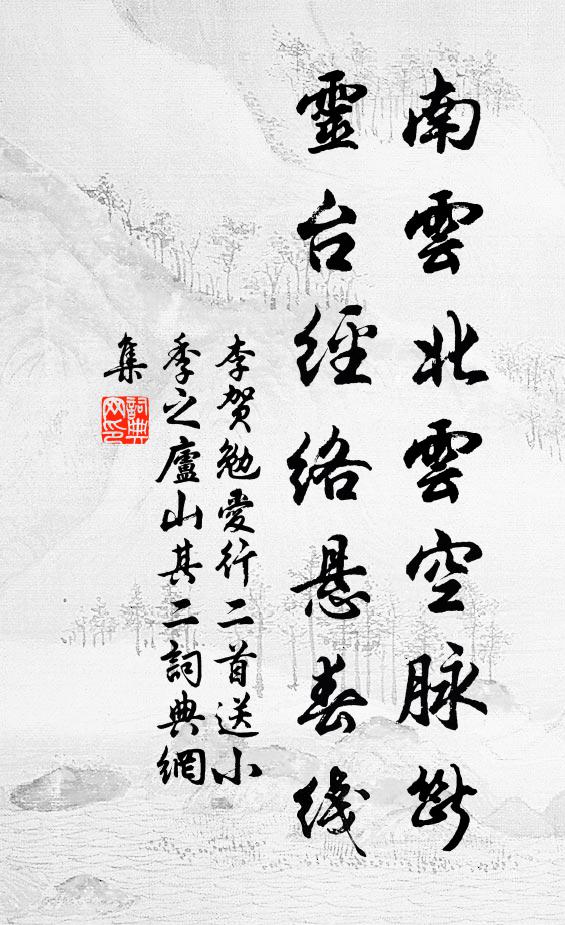 南雲北雲空脉斷
靈台經絡悬春綫
李賀勉愛行二首送小
季之廬山其二詞典網
集
詞典
网印